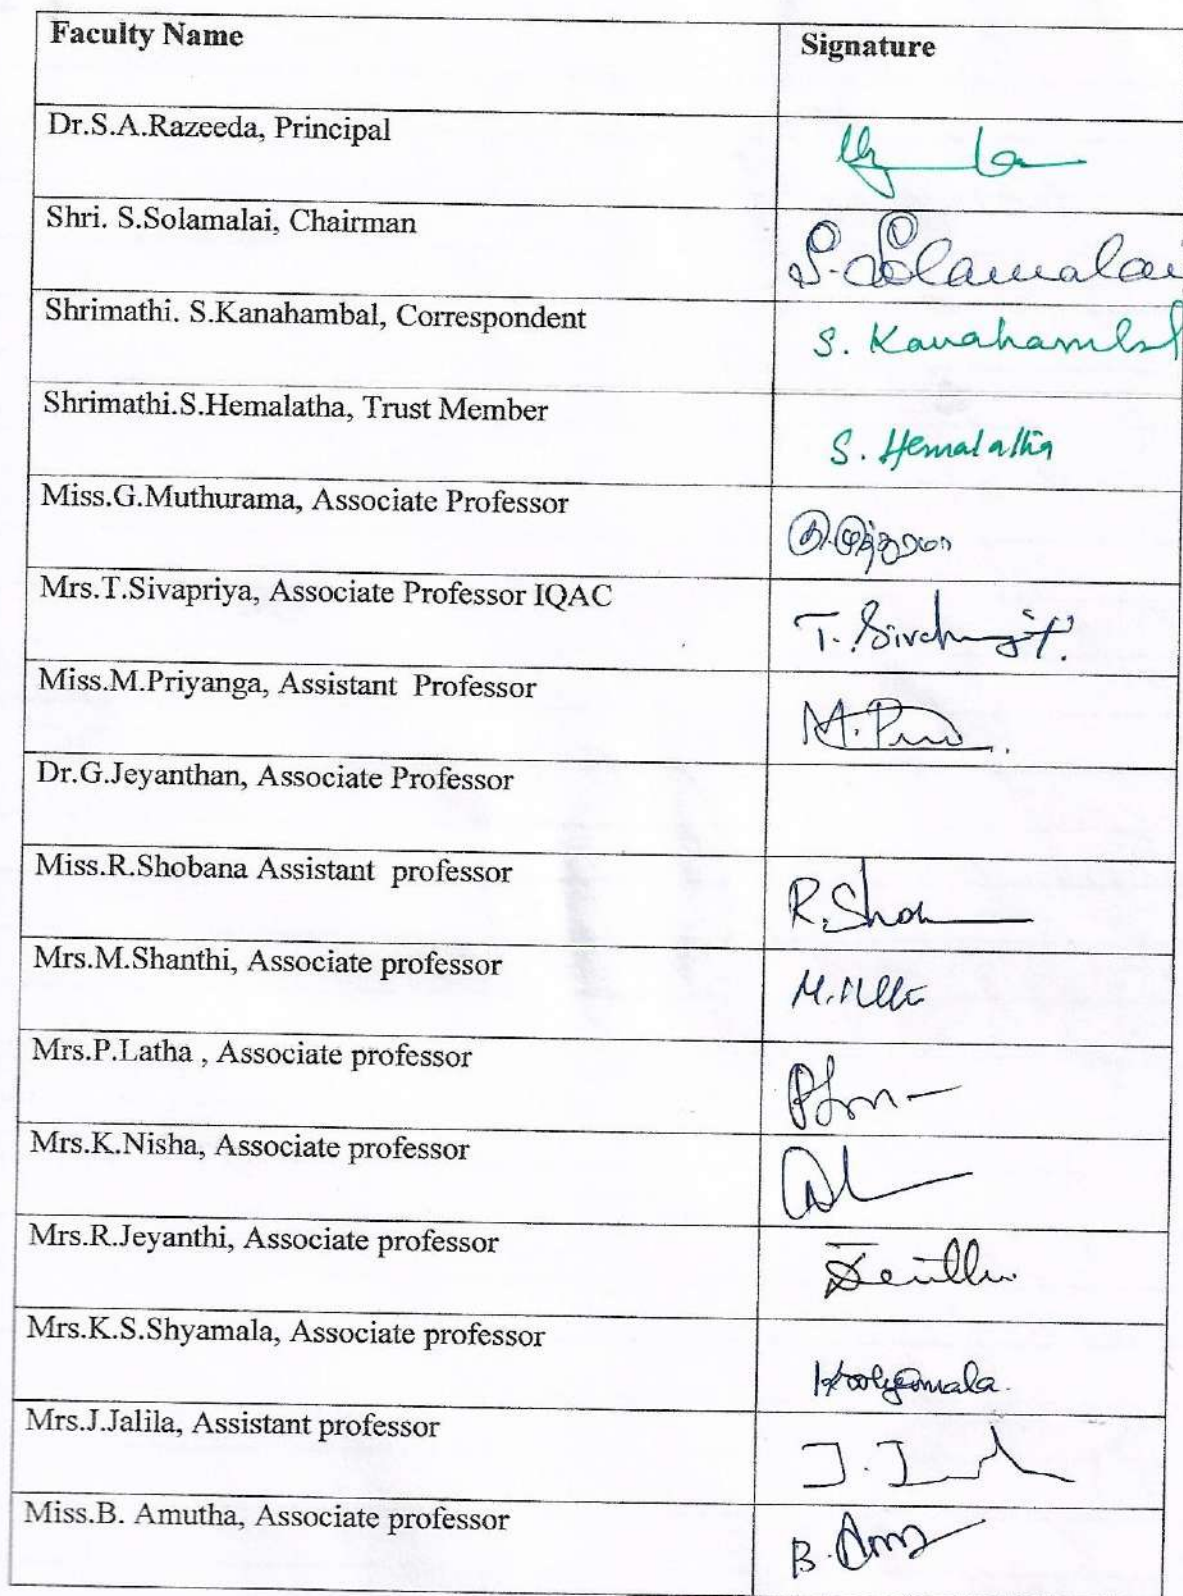 Faculty Name Signature
Dr.S.A.Razeeda, Principal
Shri. S.Solamalai, Chairman S. Solamalai
Shrimathi. S.Kanahambal, Correspondent S. Kanahambal
Shrimathi.S.Hemalatha, Trust Member S. Hemalatha
Miss.G.Muthurama, Associate Professor கு.முத்துரமா
Mrs.T.Sivapriya, Associate Professor IQAC T.
Miss.M.Priyanga, Assistant Professor M.
Dr.G.Jeyanthan, Associate Professor
Miss.R.Shobana Assistant professor R.
Mrs.M.Shanthi, Associate professor M.
Mrs.P.Latha , Associate professor
Mrs.K.Nisha, Associate professor
Mrs.R.Jeyanthi, Associate professor
Mrs.K.S.Shyamala, Associate professor
Mrs.J.Jalila, Assistant professor J.
Miss.B. Amutha, Associate professor B.